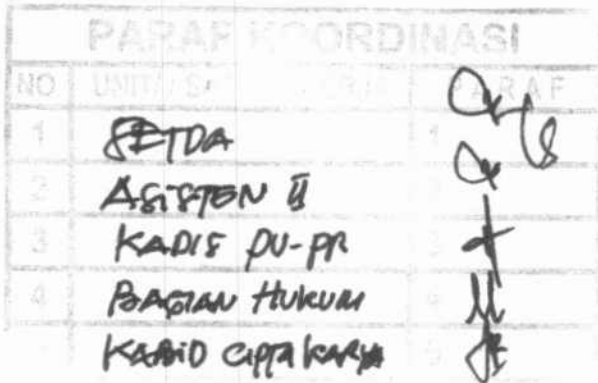 PARAF KOORDINASI
NO UNIT / SA KERJA PARAF
1 SETDA 1
2 ASISTEN II 2
3 KADIS PU-PR 3
4 BAGIAN HUKUM 4
KABID CIPTA KARYA 5